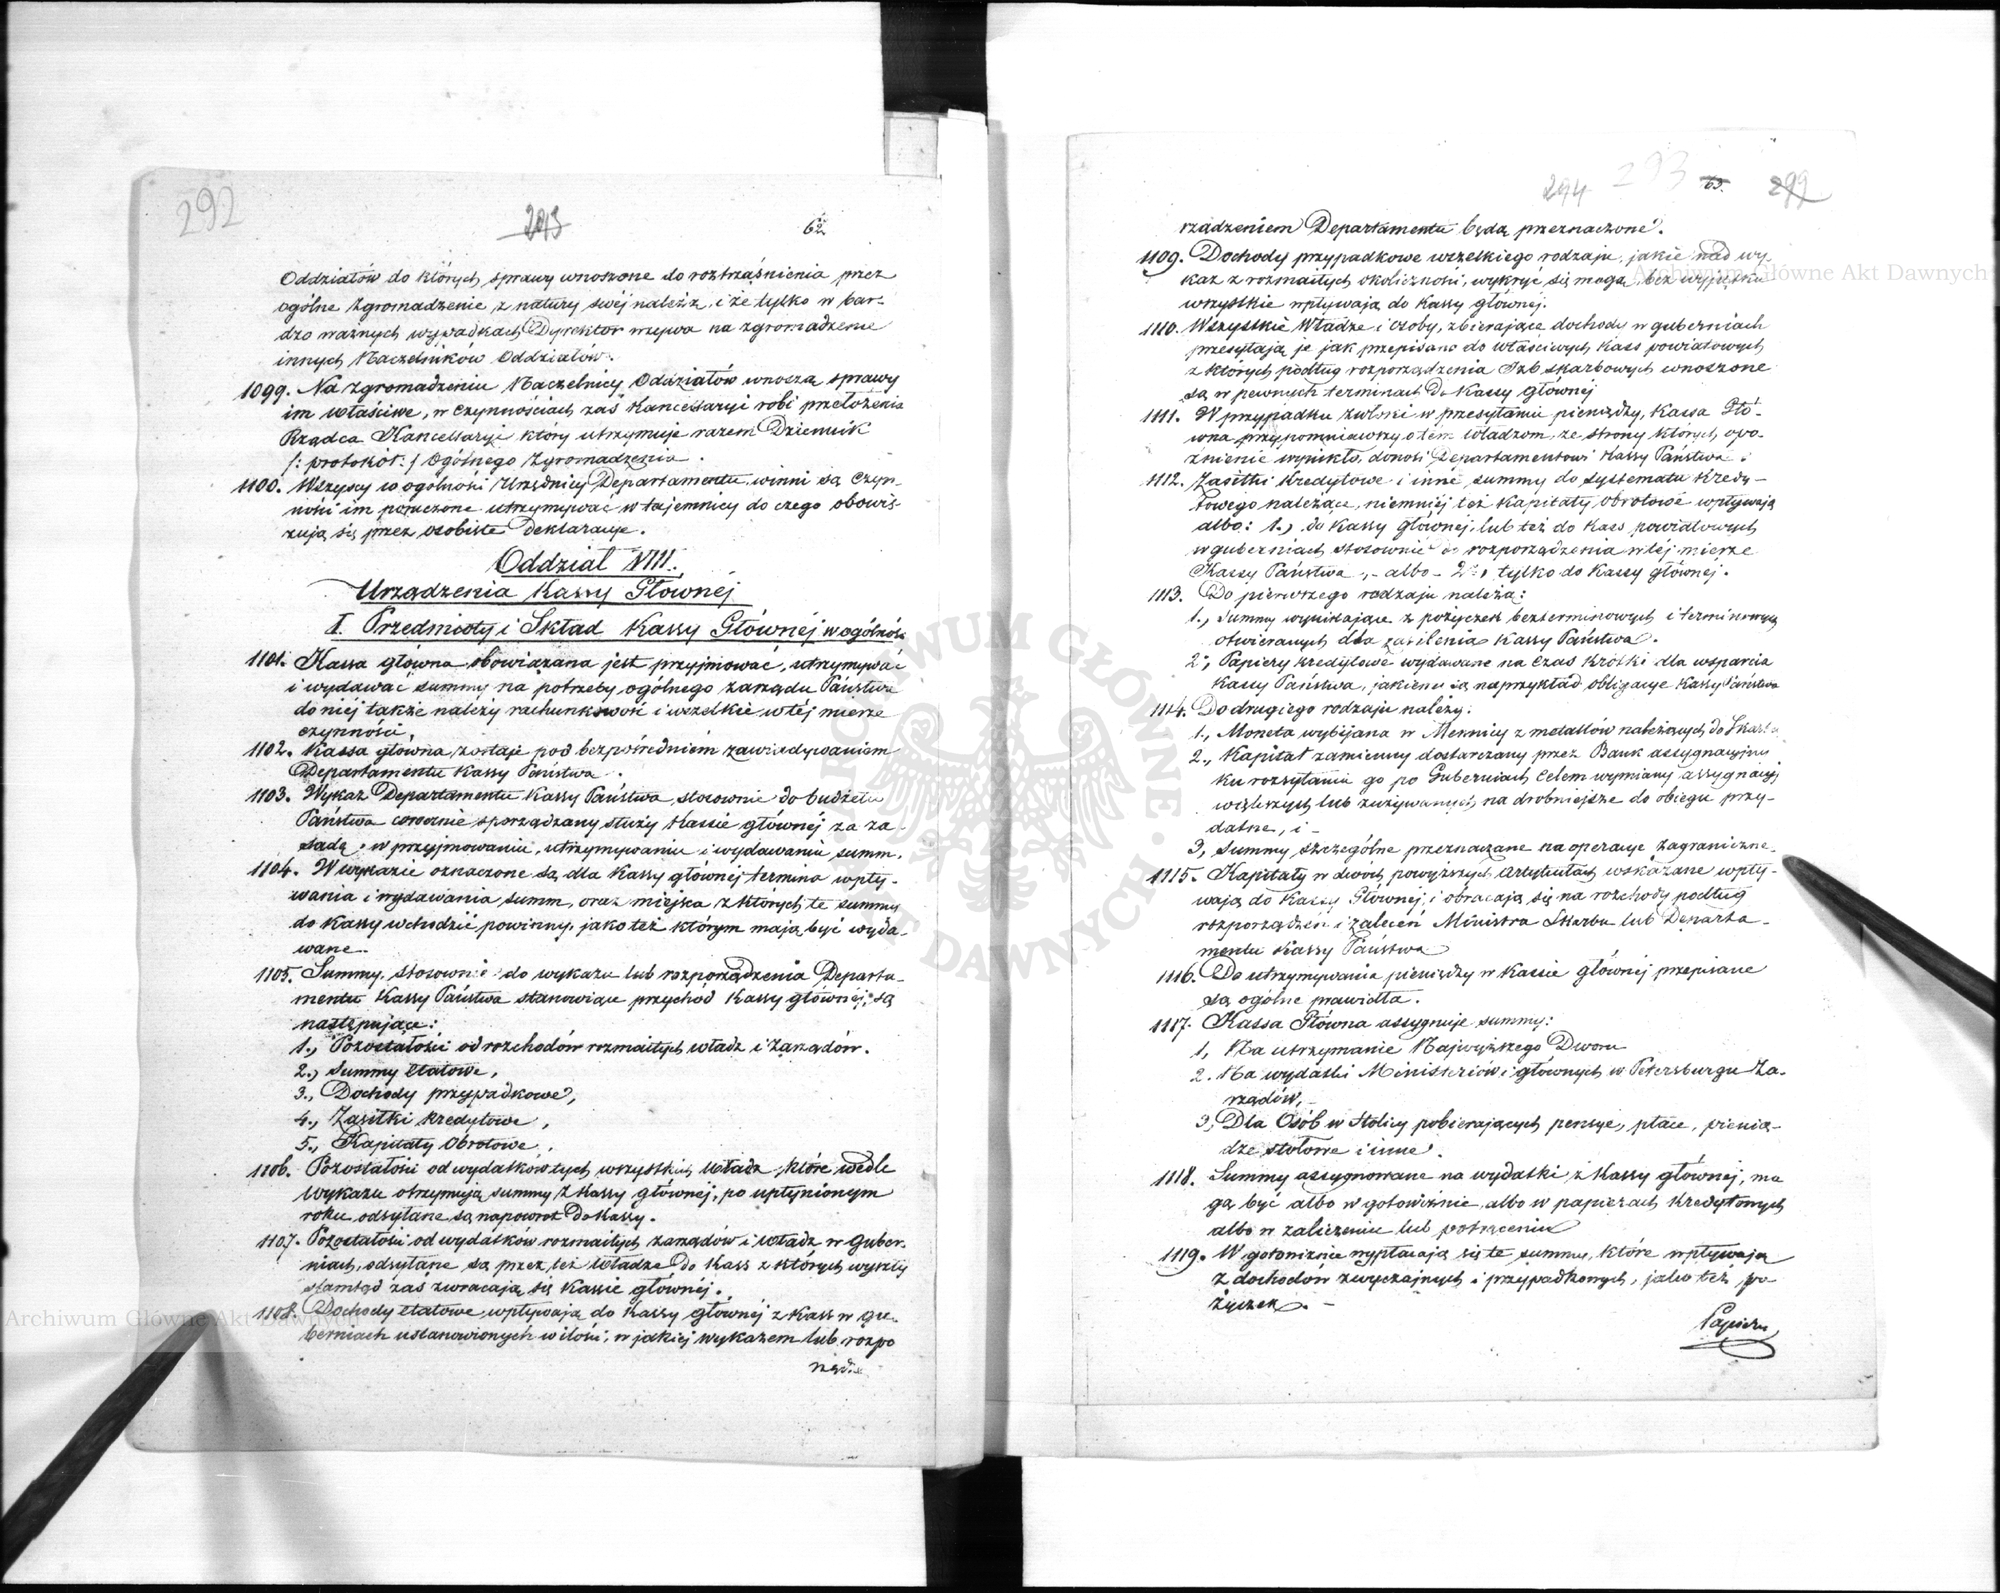 292
293
62
Oddziałów do których sprawy wnoszone do roztrząśnienia przez
ogólne Zgromadzenie z natury swéj należą, i że tylko w bar-
dzo ważnych wypadkach Dyrektor wzywa na zgromadzenie
innych Naczelników Oddziałów.
1099. Na Zgromadzeniu Naczelnicy Oddziałów wnoszą sprawy
im właściwe, w czynnościach zaś Kancellaryi robi przełożenia
Rządca Kancellaryi który utrzymuje razem Dziennik
/: protokół :/ Ogólnego Zgromadzenia.
1100. Wszyscy w ogólności Urzędnicy Departamentu winni są czyn-
ności im poruczone utrzymywać w tajemnicy do czego obowię-
zują się przez osobiste Deklaracye.
Oddział VIII.
Urządzenia Kassy Głównéj
I. Przedmioty i Skład Kassy Głównéj w ogólności
1101. Kassa główna obowiązana jest przyjmować, utrzymywać
i wydawać summy na potrzeby ogólnego zarządu Państwa
do niéj także należy rachunkowość i wszelkie w téj mierze
czynności.
1102. Kassa główna zostaje pod bezpośredniém zawiadywaniem
Departamentu Kassy Państwa.
1103. Wykaz Departamentu Kassy Państwa, stosownie do budżetu
Państwa corocznie sporządzany służy Kassie głównéj za za-
sadę w przyjmowaniu, utrzymywaniu i wydawaniu summ.
1104. W wykazie oznaczone są dla Kassy głównéj termina wpły-
wania i wydawania summ, oraz miejsca z których te summy
do Kassy wchodzić powinny, jako też którym mają być wyda-
wane.
1105. Summy, stosownie do wykazu lub rozporządzenia Departa-
mentu Kassy Państwa stanowiące przychód Kassy głównéj, są
następujące:
1., Pozostałości od rozchodów rozmaitych władz i Zarządów.
2., Summy etatowe,
3., Dochody przypadkowe,
4., Zasiłki kredytowe,
5., Kapitały obrotowe.
1106. Pozostałości od wydatków tych wszystkich Władz, które wedle
Wykazu otrzymują summy z Kassy głównéj, po upłynionym
roku odsyłane są napowrot do Kassy.
1107. Pozostałości od wydatków rozmaitych zarządów i władz w guber-
niach, odsyłane są przez też Władze do Kass z których wyszły
stamtąd zaś zwracają się Kassie głównéj.
1108. Dochody etatowe wpływają do Kassy głównéj z Kass w gu-
berniach ustanowionych w ilości, w jakiéj wykazem lub rozpo
rządze
294
293
63.
299
rządzeniem Departamentu będą przeznaczone.
1109. Dochody przypadkowe wszelkiego rodzaju, jakie nad wy-
kaz z rozmaitych okoliczności, wykryć się mogą, bez wyjątku
wszystkie wpływają do Kassy głównéj.
1110. Wszystkie Władze i osoby, zbierające dochody w guberniach
przesyłają je jak przepisano do właściwych Kass powiatowych
z których podług rozporządzenia Izb skarbowych wnoszone
są w pewnych terminach do Kassy głównéj
1111. W przypadku zwłoki w przesyłaniu pieniędzy, Kassa Głó-
wna przypomniawszy o tém władzom, ze strony których opo-
źnienie wynikło, donosi Departamentowi Kassy Państwa.
1112. Zasiłki Kredytowe i inne summy do systematu Kredy-
towego należące, niemniéj też Kapitały obrotowe wpływają
albo: 1., do Kassy głównéj, lub też do Kass powiatowych
w guberniach stosownie do rozporządzenia w téj mierze
Kassy Państwa,- albo - 2., tylko do Kassy głównéj.
1113. Do pierwszego rodzaju należą:
1., Summy wynikające z pożyczek bezterminowych i terminowych
otwieranych dla zasilenia Kassy Państwa.
2., Papiery kredytowe wydawane na czas krótki dla wsparcia
Kassy Państwa, jakiemi są naprzykład obligacye Kassy Państwa
1114. Do drugiego rodzaju należy:
1., Moneta wybijana w Mennicy z metallów należących do Skarbu
2., Kapitał zamienny dostarczany przez Bank assygnacyjny
ku rozsyłaniu go po Guberniach celem wymiany assygnacyj
większych lub zużywanych na drobniejsze do obiegu przy-
datne, i -
3, Summy szczególne przeznaczane na operacye zagraniczne.
1115. Kapitały w dwóch powyższych artykułach wskazane wpły-
wają do Kassy Głównéj i obracają się na rozchody podług
rozporządzeń i zaleceń Ministra Skarbu lub Departa-
mentu Kassy Państwa
1116. Do utrzymywania pieniędzy w Kassie głównéj przepisane
są ogólne prawidła.
1117. Kassa Główna assygnuje summy:
1, Na utrzymanie Najwyższego Dworu
2. Na wydatki Ministeriów i głównych w Petersburgu Za-
rządów,-
3, Dla Osób w Stolicy pobierających pensye, płace, pienią-
dze stołowe i inne.
1118. Summy assygnowane na wydatki z Kassy głównéj, mo
gą być albo w gotowiźnie, albo w papierach Kredytowych
albo w zaliczeniu lub potrąceniu
1119. W gotowiźnie wypłacają się te summy, które wpływają
z dochodów zwyczajnych i przypadkowych, jako też po-
życzek. -
Papiery
ARCHIWUM GŁÓWNE AKT DAWNYCH
Archiwum Główne Akt Dawnych
Archiwum Główne Akt Dawnych